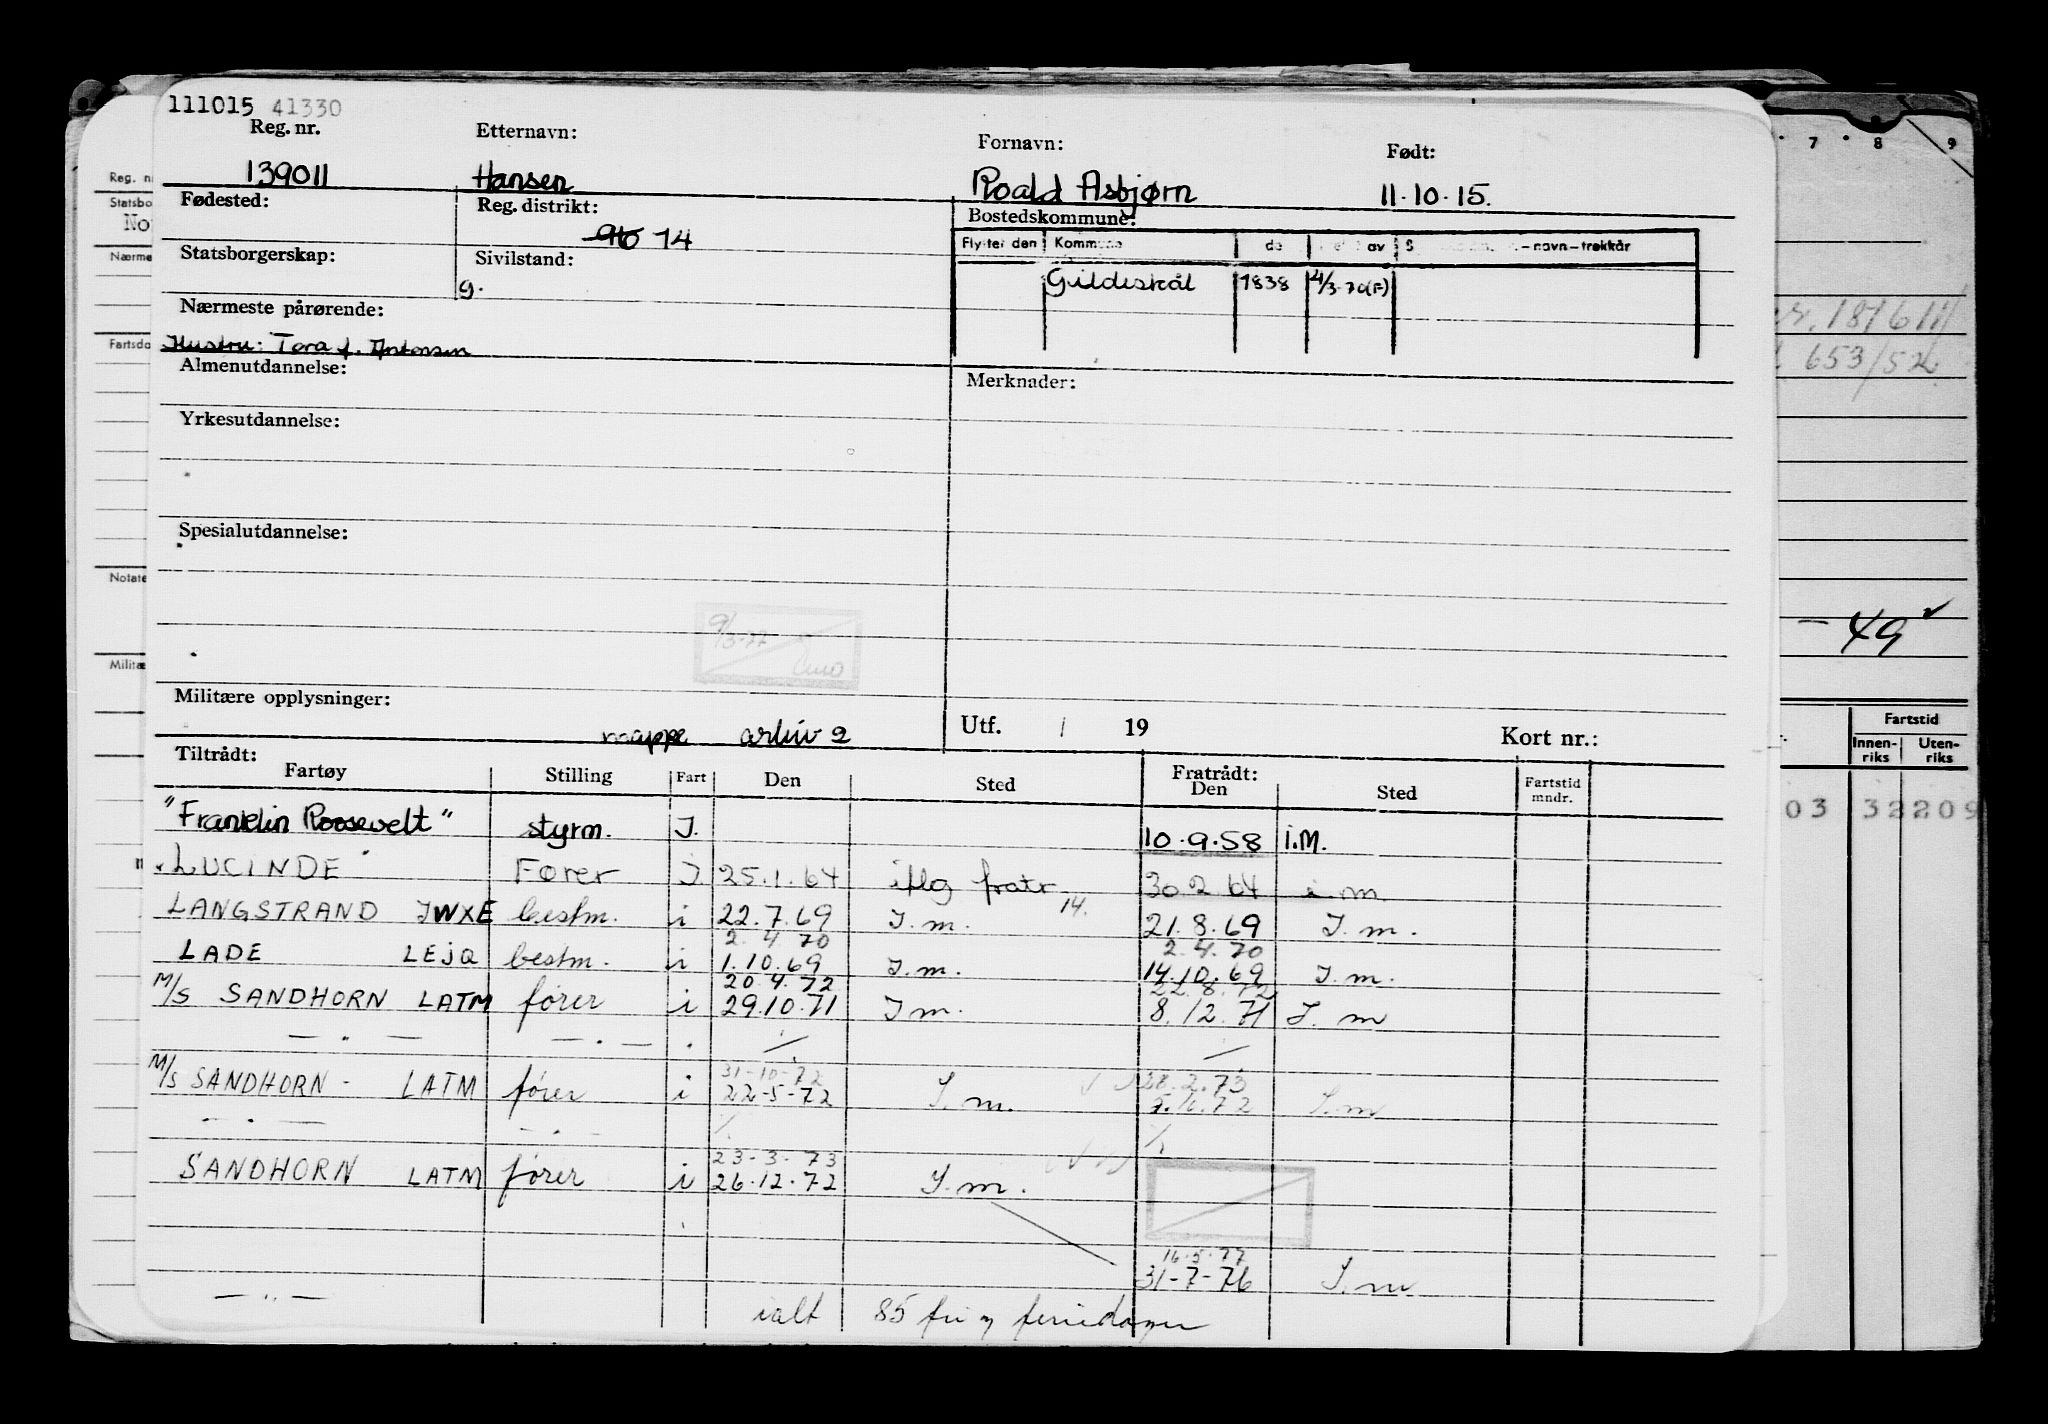 111015 41330
Reg. nr. Etternavn: Fornavn: Født:
139011 Hansen Roald Asbjørn 11.10.15.
Fødested: Reg. distrikt: Bostedskommune:
96 14
Flyttet den Kommune av -navn-trekkår
Statsborgerskap: Sivilstand:
g. Gildeskål 1838 4/3-70(F)
Nærmeste pårørende:
Hustru: Tora f. Antonsen
Almenutdannelse: Merknader:
Yrkesutdannelse:
Spesialutdannelse:
9/3-77
Militære opplysninger:
mappe arkiv 2 Utf. / 19 Kort nr.:
Tiltrådt: Fratrådt:
Fartøy Stilling Fart Den Sted Den Sted Fartstid mndr.
"Franklin Roosevelt" styrm. I. 10.9.58 i.M.
LUCINDE Fører I 25.1.64 iflg fratr. 30.2.64 i.m.
14.
LANGSTRAND JWXE bestm. i 22.7.69 I.m. 21.8.69 I.m.
2.4.70 2.4.70
LADE LEJQ bestm. i 1.10.69 I.m. 14.10.69 I.m.
20.4.72 22.8.72
M/S SANDHORN LATM fører i 29.10.71 I m. 8.12.71 I.m
— " — — " — " /. /.
31-10-72 28.2.73
M/S SANDHORN - LATM fører i 22-5-72 I.m. 5.10.72 I.m
— " — — " — /. /.
23-3-73
SANDHORN LATM fører i 26.12.72 I.m.
16.5.77
31-7-76 I.m
— " — ialt 85 fri og feriedager
Reg. n
Statsbo
No
Nærme
Fartsdo
Notate
Militæ
7 8 9
nr. 181611
653/52
- 49
Fartstid
Innen-riks Uten-riks
03 32209